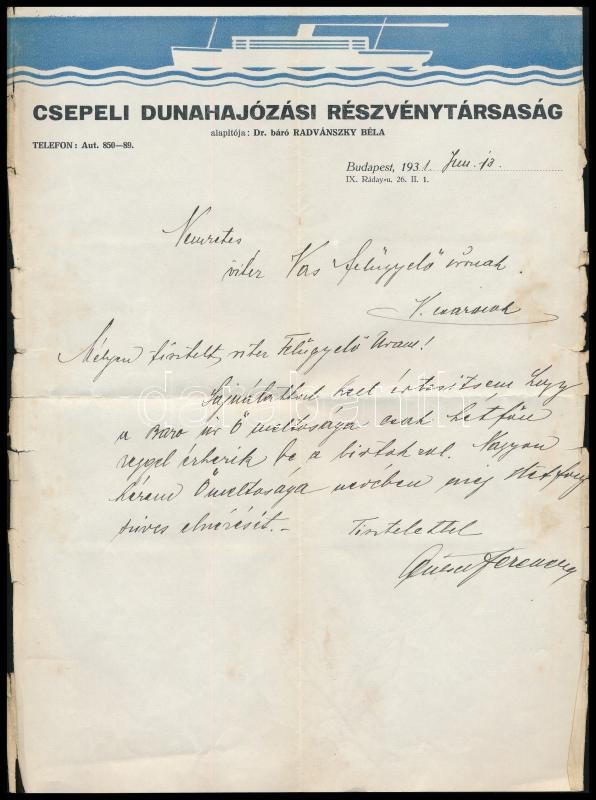 CSEPELI DUNAHAJÓZÁSI RÉSZVÉNYTÁRSASÁG
alapítója: Dr. báró RADVÁNSZKY BÉLA
TELEFON: Aut. 850—89.
Budapest, 1931. Jun. 13.
IX. Ráday-u. 26. II. 1.
Nemzetes
vitéz Vas felügyelő úrnak.
Mélyen tisztelt vitéz Felügyelő Uram!
Sajnálattal kell értesítsem hogy
a Báró úr Ő méltósága csak hétfőn
reggel érkezik be a birtokról. Nagyon
kérem Őméltósága nevében
szíves elnézését.–
Tisztelettel
Ferencz
darabanth